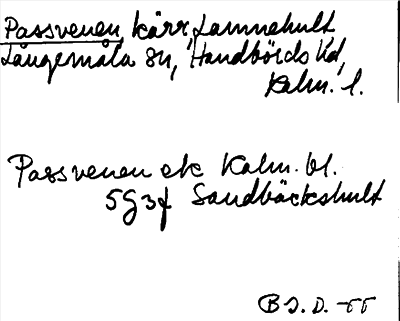 Passvenen, kärr, Lamnehult
Långemåla sn, Handbörds hd,
Kalm. l.
Passvenen ek Kalm. bl.
5G3f Sandbäckshult
B J. D. -55